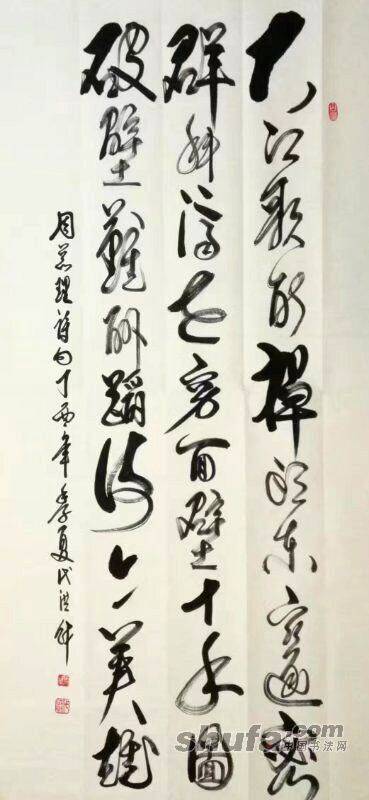 大江歌罢掉头东邃密
群科济世穷面壁十年圖
破壁難酬蹈海亦英雄
周总理詩句丁酉年季夏代洪
shufa.com
中国书法网